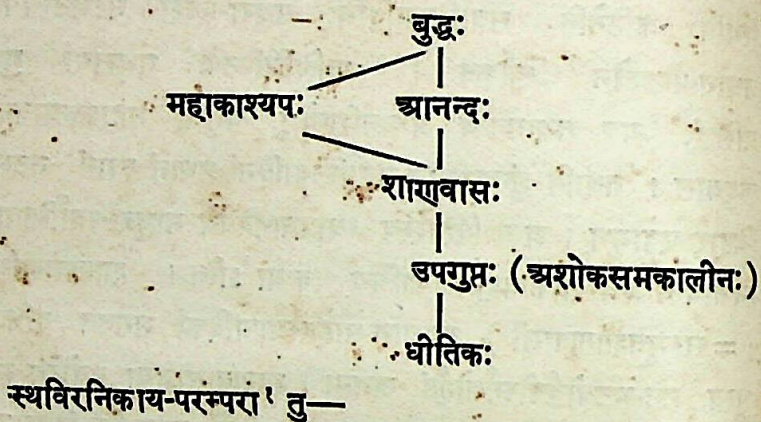 बुद्धः
महाकाश्यपः आनन्दः
शाणवासः
उपगुप्तः (अशोकसमकालीनः)
धीतिकः
स्थविरनिकाय-परम्परा¹ तु—